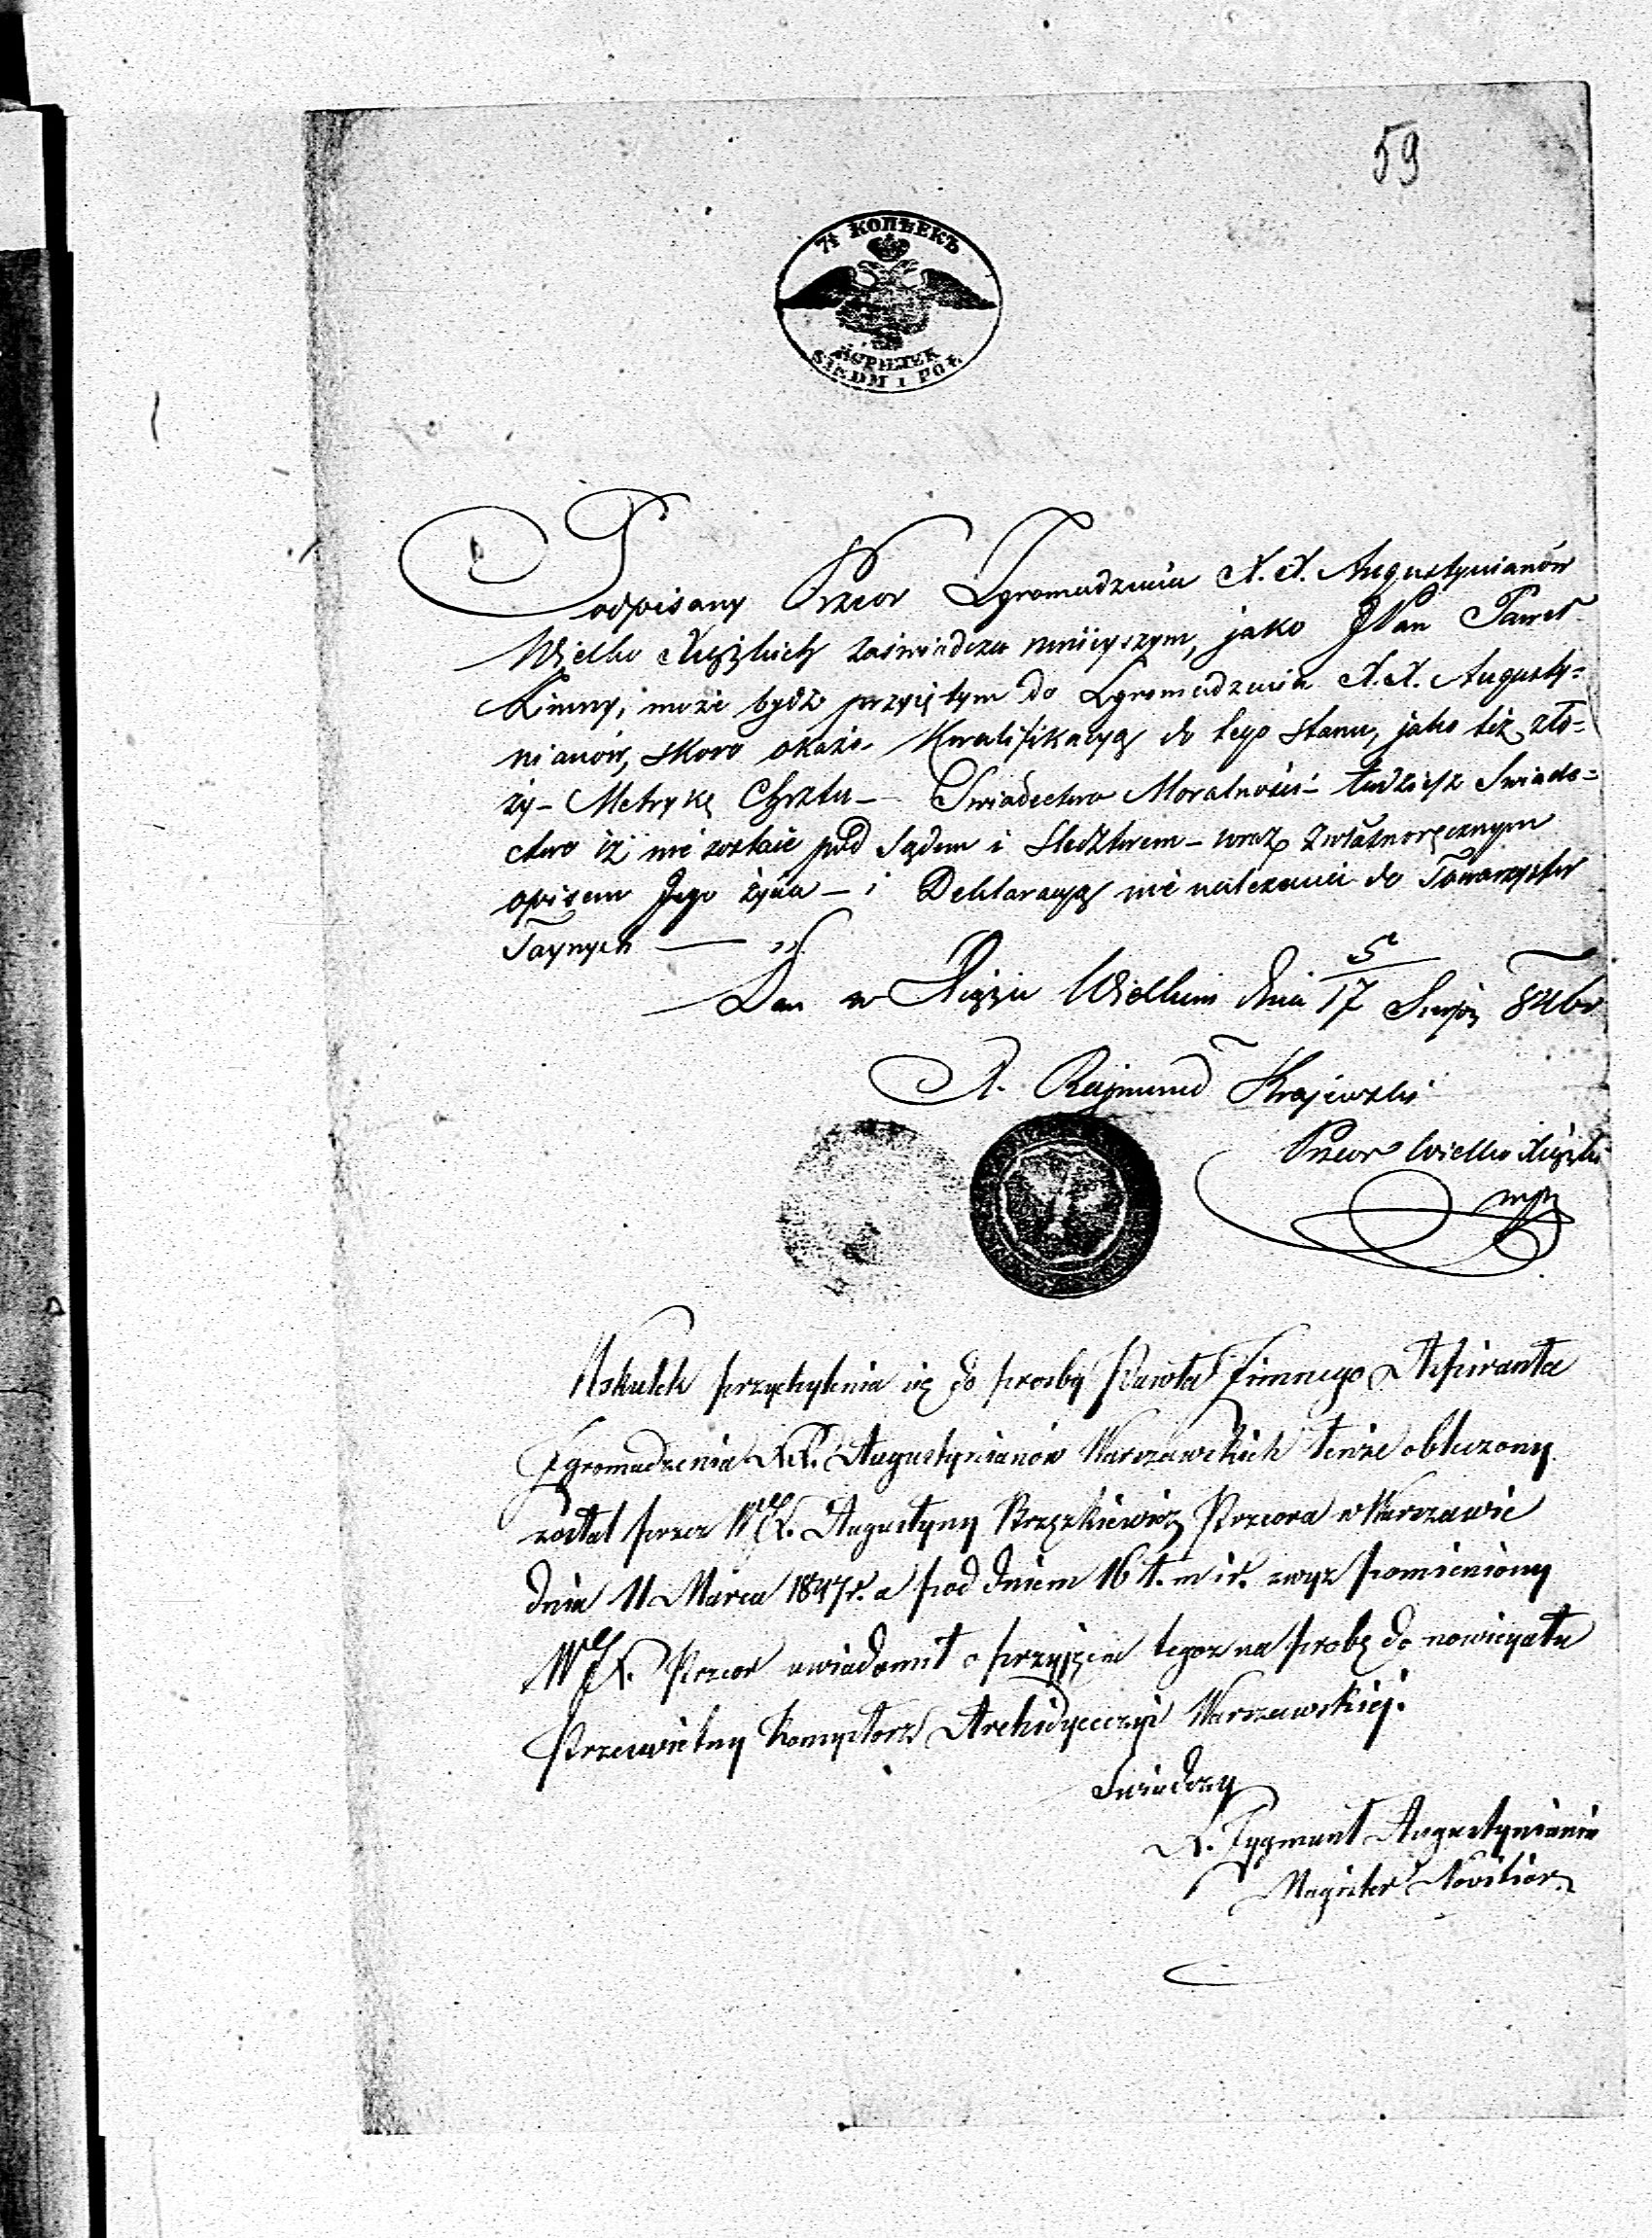 59
7½ КОПѢЕКЪ
KOPIEJEK
SIEDM I POŁ
Podpisany Przeor Zgromadzenia X.X. Augustynianów
Wielko Xiązkich zaświadcza ninieyszym, jako JPan Paweł
Zimny, może bydź przyiętym do Zgromadzenia X.X. Augusty=
nianów, skoro okaże Kwalifikacyą do tego stanu, jako też zło=
ży – Metrykę Chrztu – Świadectwo Moralności – tudzież Swiade=
ctwo iż nie zostaie pod Sądem i Sledztwem – wraz z własnoręcznym
opisem Jego życia – i Deklaracyą nie należenia do Towarzystw
Taynych —
Dan w Xiążu Wielkim dnia 5/17 Sierp. 846 r
X. Rajmund Krajewski
Przeor Wielko Xiązki
mp
Wskutek przychylenia się do prośby Pawła Zimnego Aspiranta
Zgromadzenia XX. Augustynianów Warszawskich tenże obleczony
został przez WJX. Augustyny Przeora w Warszawie
dnia 11 Marca 1847 r. a pod dniem 16 t. m i r. zwyz pomieniony
WJX. Przeor uwiadomił o przyjęciu tegoż na probę do nowicyatu
Prześwietny Konsystorz Archidyecezyi Warszawskiej.
Swiadczy
X. Zygmunt Augustynianin
Magister Novitior.